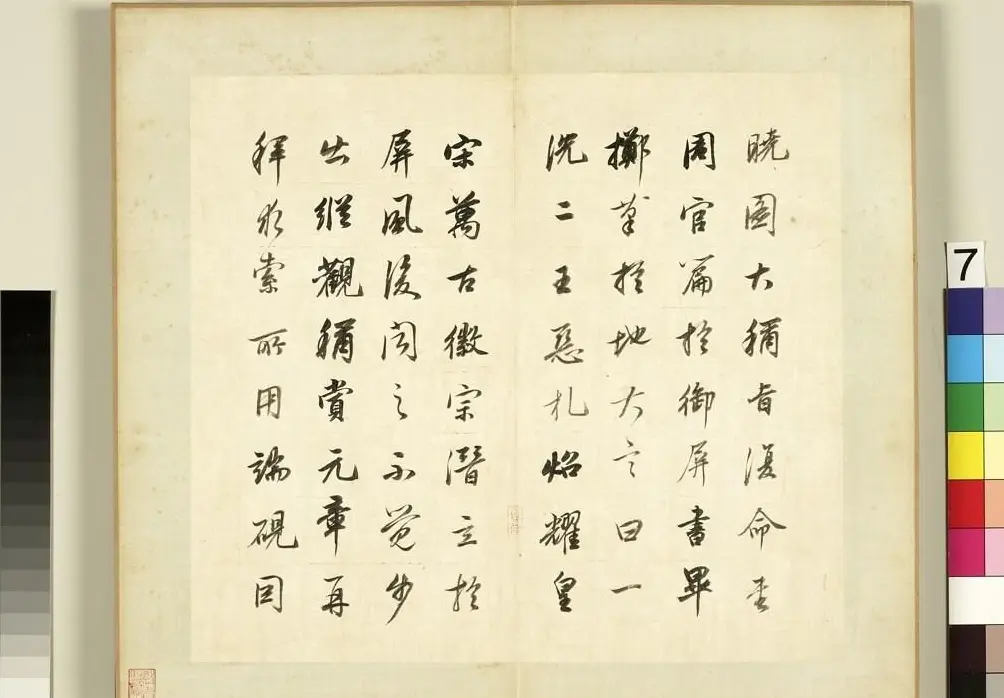 曉圖大稱旨復命書
周官篇於御屏書畢
擲筆於地大言曰一
洗二王惡札炤耀皇
宋萬古徽宗潛立於
屏風後聞之不覺步
出縱觀稱賞元章再
拜求索所用端硯因
7